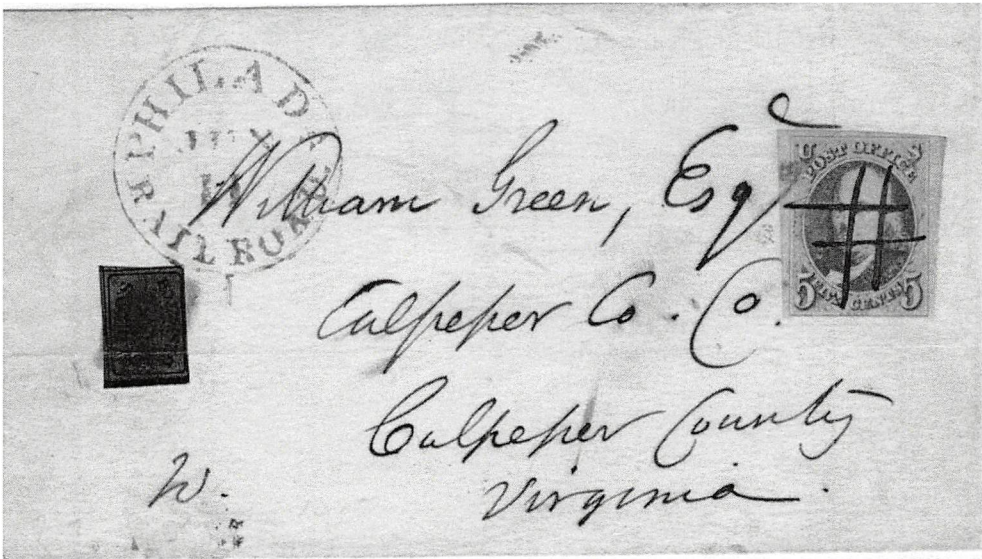 PHILADA
RAILROAD
William Green, Esq
Culpeper Co. Co.
Culpeper County
Virginia.
W.
U S
POST OFFICE
5 FIVE CENTS 5